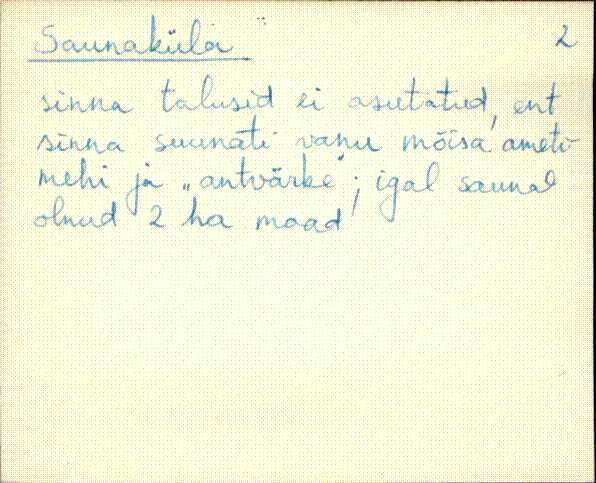 Saunaküla 2
sinna talusid ei asutatud, ent
sinna suunati vanu mõisa ameti-
mehi ja „antvärke"; igal saunal
olnud 2 ha maad